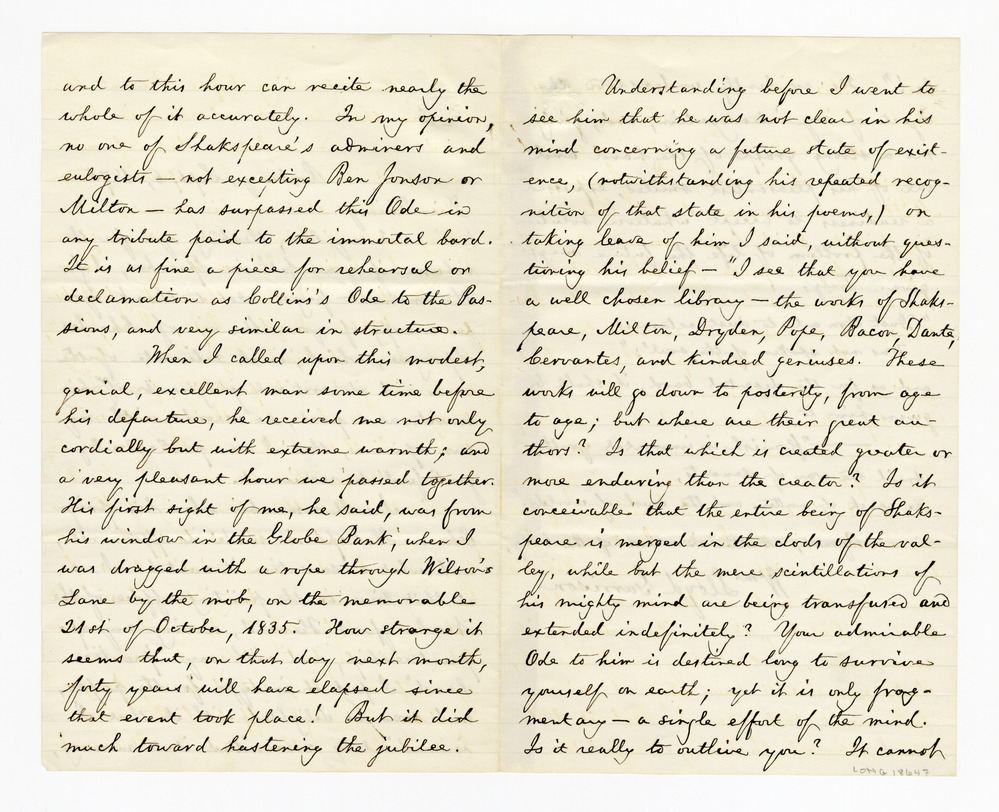 and to this hour can recite nearly the
whole of it accurately. In my opinion,
no one of Shakspeare's admirers and
eulogists — not excepting Ben Jonson or
Milton — has surpassed this Ode in
any tribute paid to the immortal bard.
It is as fine a piece for rehearsal or
declamation as Collins's Ode to the Pas-
sions, and very similar in structure.
When I called upon this modest,
genial, excellent man some time before
his departure, he received me not only
cordially but with extreme warmth; and
a very pleasant hour we passed together.
His first sight of me, he said, was from
his window in the Globe Bank, when I
was dragged with a rope through Wilson's
Lane by the mob, on the memorable
21st of October, 1835. How strange it
seems that, on that day next month,
forty years will have elapsed since
that event took place! But it did
much toward hastening the jubilee.
Understanding before I went to
see him that he was not clear in his
mind concerning a future state of exist-
ence, (notwithstanding his repeated recog-
nition of that state in his poems,) on
taking leave of him I said, without ques-
tioning his belief — "I see that you have
a well chosen library — the works of Shaks-
peare, Milton, Dryden, Pope, Bacon, Dante,
Cervantes, and kindred geniuses. These
works will go down to posterity, from age
to age; but where are their great au-
thors? Is that which is created greater or
more enduring than the creator? Is it
conceivable that the entire being of Shaks-
peare is merged in the clods of the val-
ley, while but the mere scintillations of
his mighty mind are being transfused and
extended indefinitely? Your admirable
Ode to him is destined long to survive
yourself on earth; yet it is only frag-
mentary — a single effort of the mind.
Is it really to outlive you? It cannot
LONG 18647